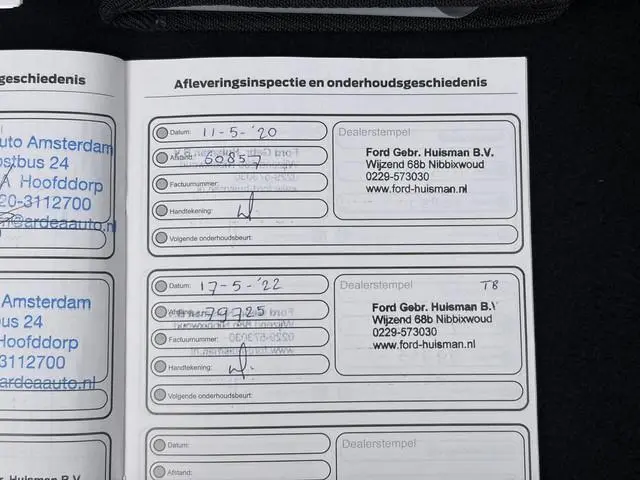 geschiedenis
uto Amsterdam
ostbus 24
A Hoofddorp
20-3112700
@ardeaauto.nl
Amsterdam
us 24
Hoofddorp
3112700
ardeaauto.nl
Huisman B.V.
Afleveringsinspectie en onderhoudsgeschiedenis
Datum: 11-5-'20
Afstand: 60857
Factuurnummer:
Handtekening:
Volgende onderhoudsbeurt:
Dealerstempel
Ford Gebr. Huisman B.V.
Wijzend 68b Nibbixwoud
0229-573030
www.ford-huisman.nl
Datum: 17-5-'22
Afstand: 79725
Factuurnummer:
Handtekening:
Volgende onderhoudsbeurt:
Dealerstempel
T8
Ford Gebr. Huisman B.V
Wijzend 68b Nibbixwoud
0229-573030
www.ford-huisman.nl
Datum:
Afstand:
Dealerstempel